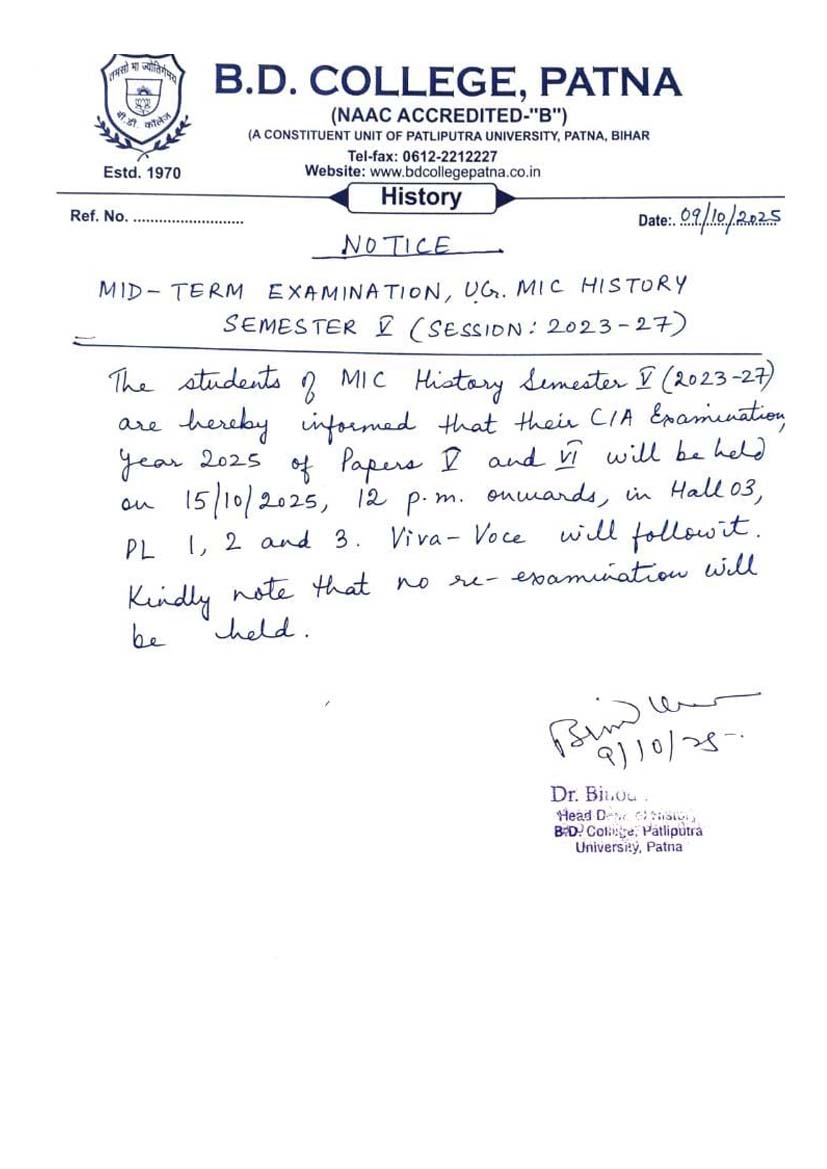 तमसो मा ज्योतिर्गमय
बी.डी. कॉलेज
Estd. 1970
B.D. COLLEGE, PATNA
(NAAC ACCREDITED-"B")
(A CONSTITUENT UNIT OF PATLIPUTRA UNIVERSITY, PATNA, BIHAR
Tel-fax: 0612-2212227
Website: www.bdcollegepatna.co.in
History
Ref. No. ..........................
Date:. 09/10/2025
NOTICE
MID-TERM EXAMINATION, UG. MIC HISTORY
SEMESTER V (SESSION: 2023-27)
The students of MIC History Semester V (2023-27)
are hereby informed that their CIA Examination,
Year 2025 of Papers V and VI will be held
on 15/10/2025, 12 p.m. onwards, in Hall 03,
PL 1, 2 and 3. Viva-Voce will follow it.
Kindly note that no re-examination will
be held.
9/10/25
Dr.
Head
B.D. College, Patliputra
University, Patna